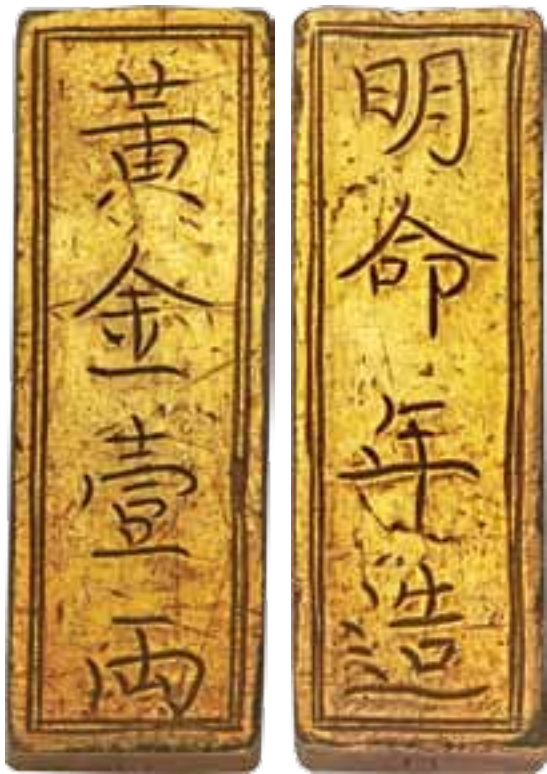 黃金壹両
明命年造